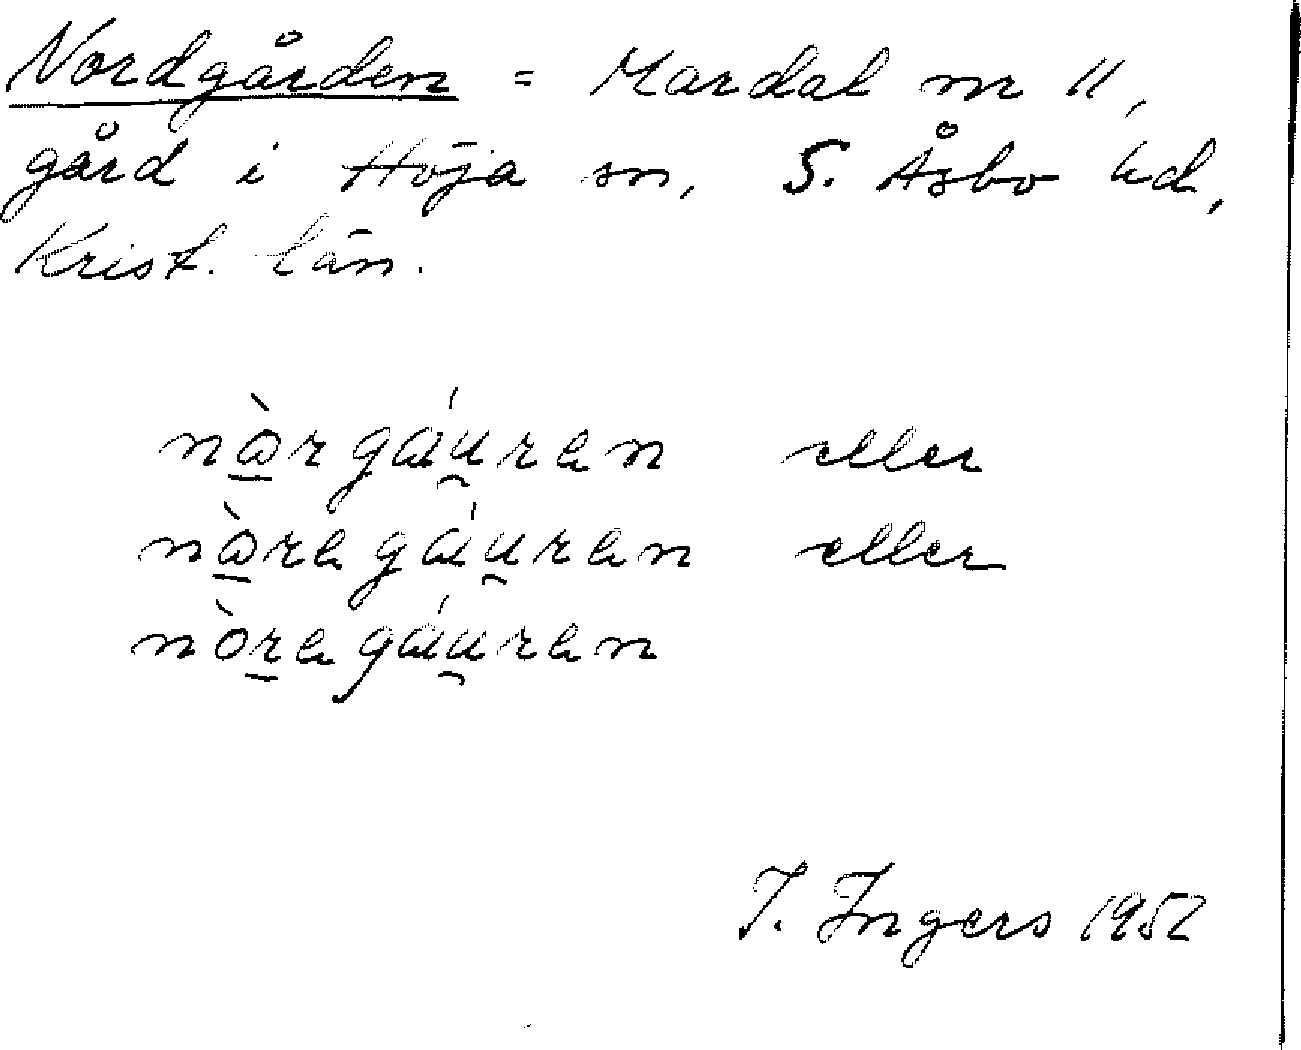 Nordgården = Mardal nr 11,
gård i Höja sn, S. Åsbo hd,
Krist. län.
nàrgáu̯ren eller
nàregáu̯ren eller
nòregáu̯ren
I. Ingers 1952